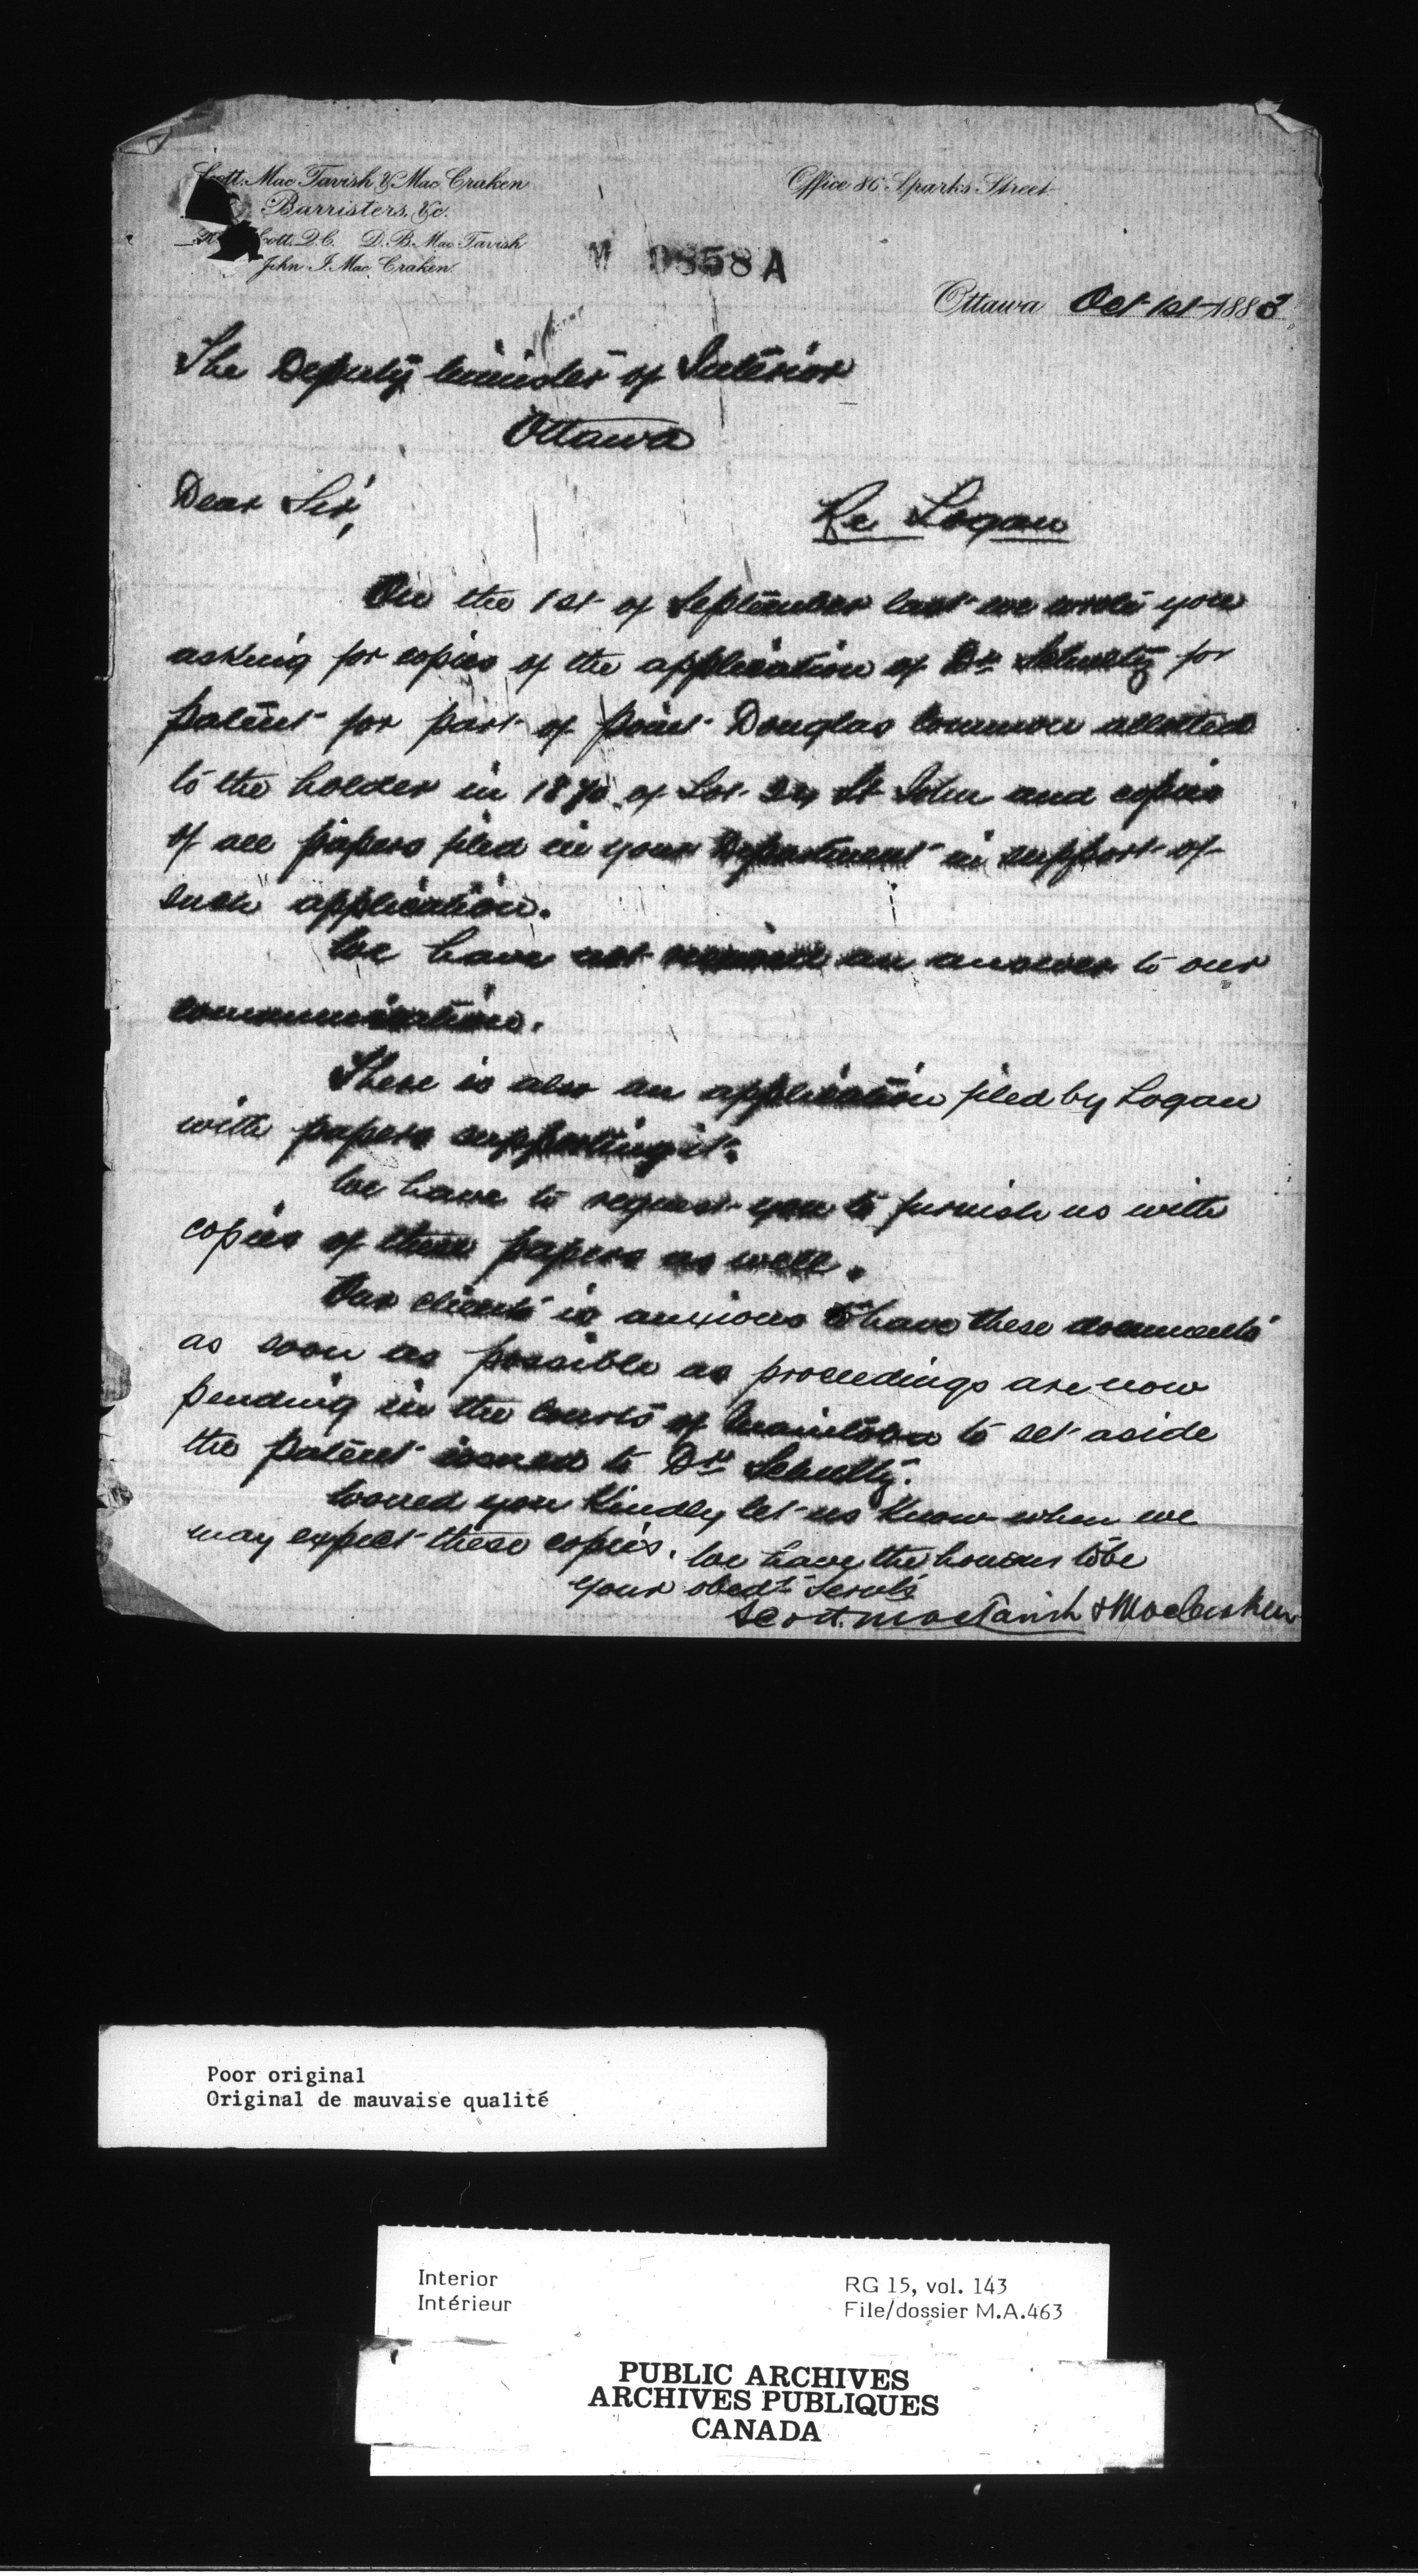 Scott, Mac Tavish & Mac Craken
Barristers, &c.
Scott, Q.C. D. B. Mac Tavish
John I. Mac Craken
Office 86 Sparks Street
0858 A
Ottawa Oct 1st 1883
The Deputy Minister of Interior
Ottawa
Dear Sir,
Re Logan
On the 1st of September last we wrote you
asking for copies of the application of Dr Schultz for
patent for part of Point Douglas Common allotted
to the holder in 1870 of Lot 24 St John and copies
of all papers filed in your Department in support of
such application.
We have not received an answer to our
communication.
There is also an application filed by Logan
with papers supporting it.
We have to request you to furnish us with
copies of these papers as well.
Our client is anxious to have these documents
as soon as possible as proceedings are now
pending in the Courts of Manitoba to set aside
the patent issued to Dr Schultz.
Would you kindly let us know when we
may expect these copies. We have the honour to be
Your obedt Servts
Scott, MacTavish & MacCraken
Poor original
Original de mauvaise qualité
Interior
Intérieur
RG 15, vol. 143
File/dossier M.A.463
PUBLIC ARCHIVES
ARCHIVES PUBLIQUES
CANADA